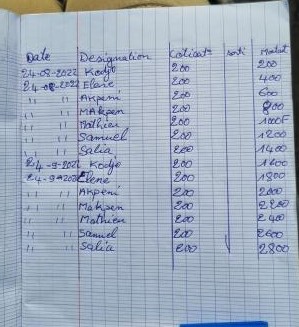 Date Designation Cotisat° sorti Montant
24-08-2022 Kodjo 200 200
24-08-2022 Elene 200 400
" " Akpeni 200 600
" " Makpen 200 800
" " Mathieu 200 1000F
" " Samuel 200 1200
" " Salia 200 1400
24-9-2022 Kodjo 200 1600
24-9-2022 Elene 200 1800
" " Akpeni 200 2000
" " Makpen 200 2200
" " Mathieu 200 2400
" " Samuel 200 2600
" " Salia 200 2800